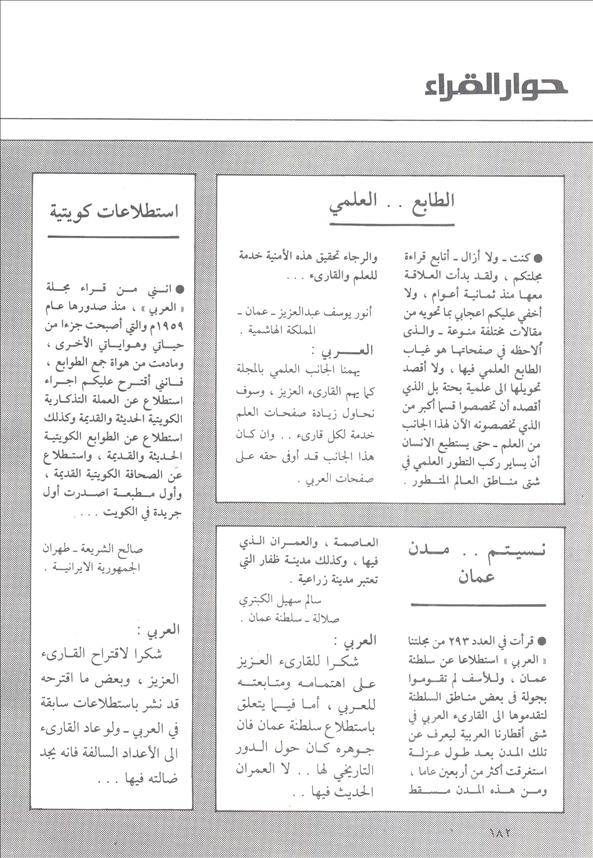 حوار القراء
الطابع . . العلمي
● كنت ـ ولا أزال ـ أتابع قراءة
مجلتكم ، ولقد بدأت العلاقة
معها منذ ثمانية أعوام ، ولا
أخفي عليكم اعجابي بما تحويه من
مقالات مختلفة منوعة ـ والذى
ألاحظه في صفحاتها هو غياب
الطابع العلمي فيها ، ولا أقصد
تحويلها الى علمية بحتة بل الذي
أقصده أن تخصصوا قسما أكبر من
الذي تخصصونه الآن لهذا الجانب
من العلم ـ حتى يستطيع الانسان
أن يساير ركب التطور العلمي في
شتى مناطق العالم المتطور .
والرجاء تحقيق هذه الأمنية خدمة
للعلم والقارىء . . .
أنور يوسف عبدالعزيز ـ عمان ـ
المملكة الهاشمية .
العربي :
يهمنا الجانب العلمي بالمجلة
كما يهم القارىء العزيز ، وسوف
نحاول زيادة صفحات العلم
خدمة لكل قارىء . . وان كان
هذا الجانب قد أوفى حقه على
صفحات العربي .
استطلاعات كويتية
● انني من قراء مجلة
« العربي » ، منذ صدورها عام
١٩٥٩م والتي أصبحت جزءا من
حياتي وهواياتي الأخرى ،
ومادمت من هواة جمع الطوابع ،
فانني أقترح عليكم اجراء
استطلاع عن العملة التذكارية
الكويتية الحديثة والقديمة وكذلك
استطلاع عن الطوابع الكويتية
الحديثة والقديمة ، واستطلاع
عن الصحافة الكويتية القديمة ،
وأول مطبعة اصدرت أول
جريدة في الكويت . . . .
صالح الشريعة ـ طهران
الجمهورية الايرانية .
العربي :
شكرا لاقتراح القارىء
العزيز ، وبعض ما اقترحه
قد نشر باستطلاعات سابقة
في العربي ـ ولو عاد القارىء
الى الأعداد السالفة فانه يجد
ضالته فيها . . .
نسيتم . . مدن
عمان
● قرأت في العدد ٢٩٣ من مجلتنا
« العربي » استطلاعا عن سلطنة
عمان ، وللأسف لم تقوموا
بجولة فى بعض مناطق السلطنة
لتقدموها الى القارىء العربي في
شتى أقطارنا العربية ليعرف عن
تلك المدن بعد طول عزلة
استغرقت أكثر من أربعين عاما ،
ومن هذه المدن مسقط
العاصمة ، والعمران الذي
فيها ، وكذلك مدينة ظفار التي
تعتبر مدينة زراعية .
سالم سهيل الكبتري
صلالة ـ سلطنة عمان .
العربي :
شكرا للقارىء العزيز
على اهتمامه ومتابعته
للعربي ، أما فيما يتعلق
باستطلاع سلطنة عمان فان
جوهره كان حول الدور
التاريخي لها . . لا العمران
الحديث فيها . .
١٨٢